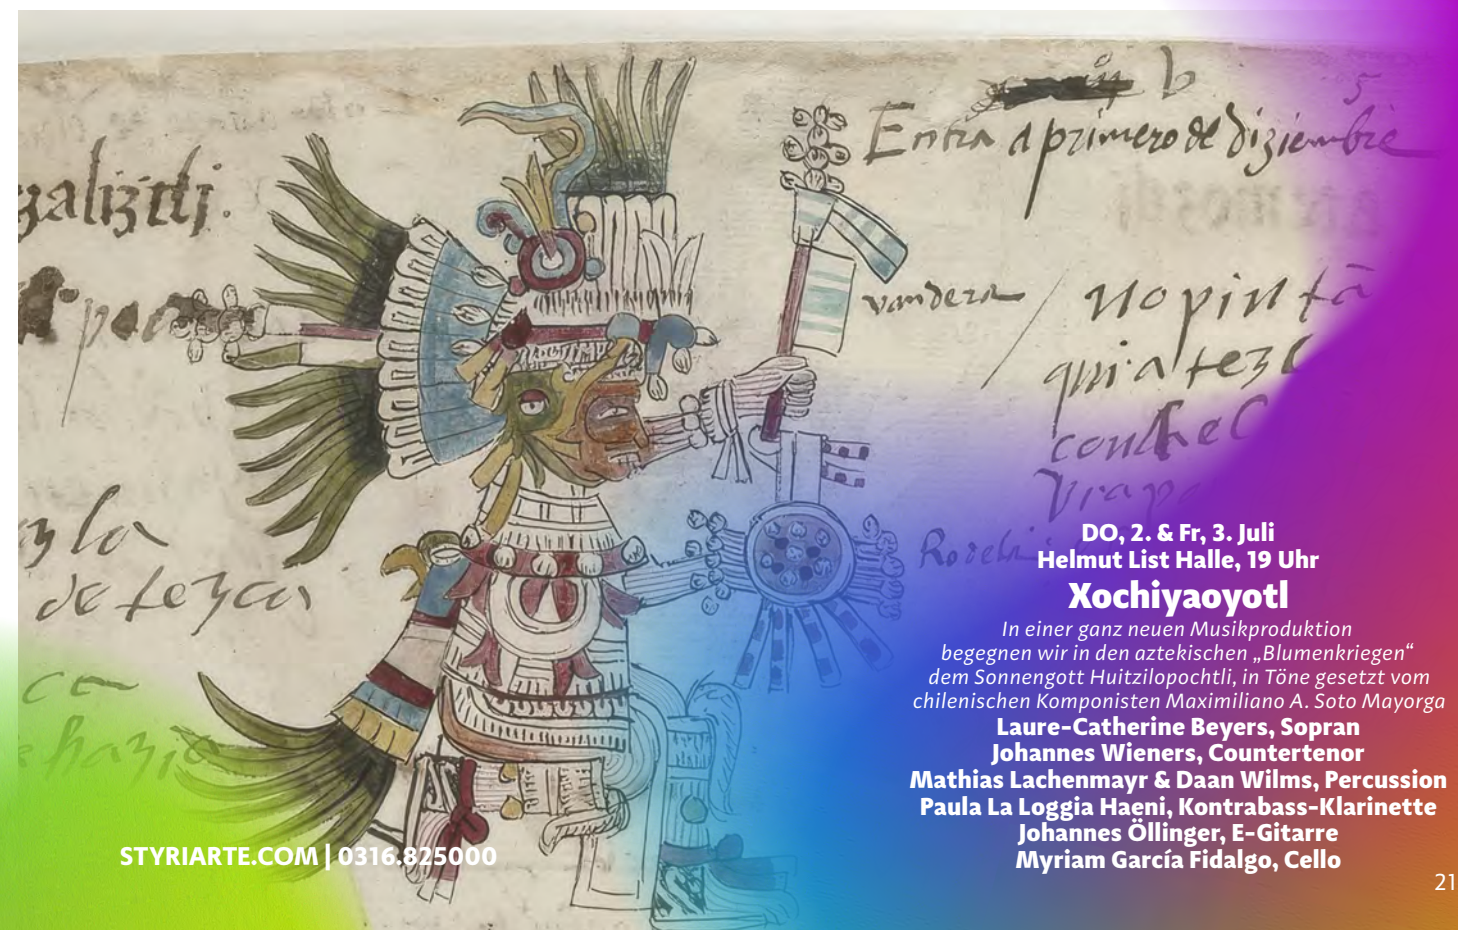 b
5
Entra a primero de diziembre
zaliztli.
vandera
no pinta
qui a tezc
con he
de tezca
ce
hazio
DO, 2. & Fr, 3. Juli
Helmut List Halle, 19 Uhr
Xochiyaoyotl
In einer ganz neuen Musikproduktion
begegnen wir in den aztekischen „Blumenkriegen“
dem Sonnengott Huitzilopochtli, in Töne gesetzt vom
chilenischen Komponisten Maximiliano A. Soto Mayorga
Laure-Catherine Beyers, Sopran
Johannes Wieners, Countertenor
Mathias Lachenmayr & Daan Wilms, Percussion
Paula La Loggia Haeni, Kontrabass-Klarinette
Johannes Öllinger, E-Gitarre
Myriam García Fidalgo, Cello
STYRIARTE.COM | 0316.825000
21